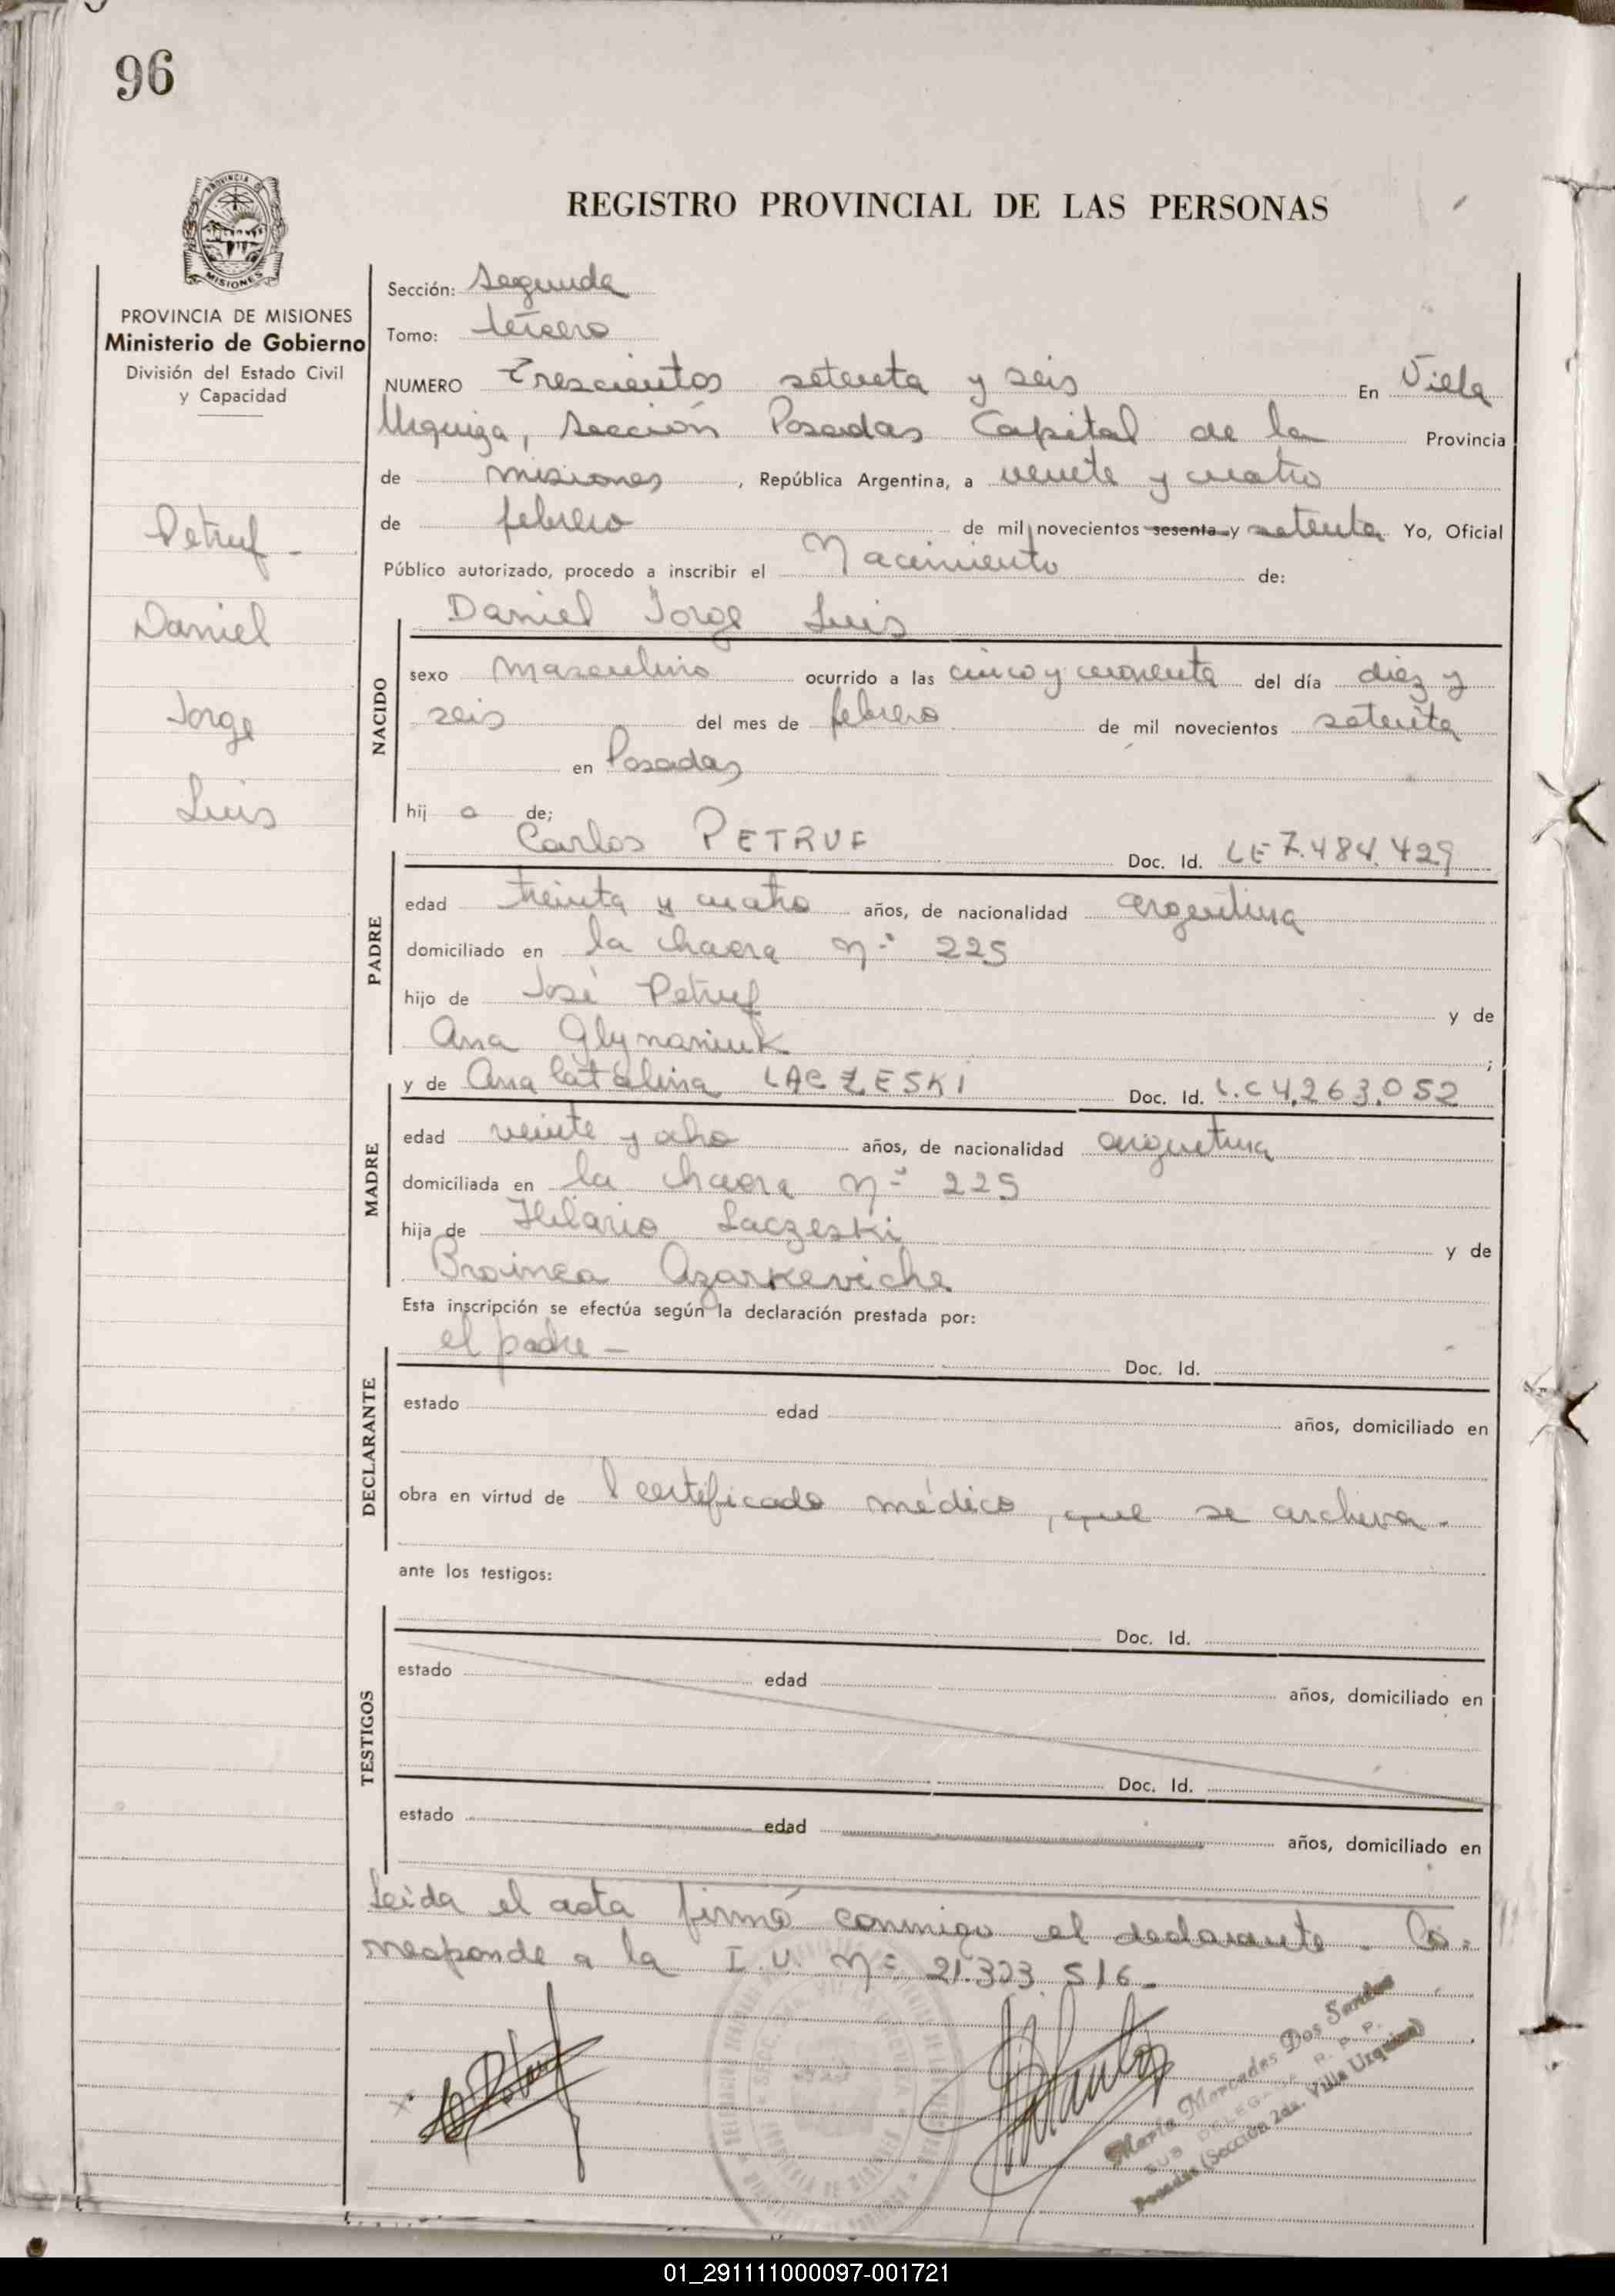 96
REGISTRO PROVINCIAL DE LAS PERSONAS
PROVINCIA DE MISIONES
Ministerio de Gobierno
División del Estado Civil
y Capacidad
Petruf -
Daniel
Jorge
Luis
Sección: Segunda
Tomo: tercero
NUMERO Trescientos setenta y seis En Villa
Urquiza, Sección Posadas Capital de la Provincia
de misiones, República Argentina, a veinte y cuatro
de febrero de mil novecientos sesenta y setenta Yo, Oficial
Público autorizado, procedo a inscribir el Nacimiento de:
Daniel Jorge Luis
NACIDO
sexo masculino ocurrido a las cinco y cuarenta del día diez y
seis del mes de febrero de mil novecientos setenta
en Posadas
hij o de;
Carlos PETRUF Doc. Id. LE 7.484.429
PADRE
edad treinta y cuatro años, de nacionalidad argentina
domiciliado en la chacra nº 225
hijo de José Petruf y de
Ana Glynaniuk ;
y de Ana Catalina LACZESKI Doc. Id. L.C 4.263.052
MADRE
edad veinte y ocho años, de nacionalidad argentina
domiciliada en la chacra nº 225
hija de Hilario Laczeski y de
Broinea Azarkeviche
Esta inscripción se efectúa según la declaración prestada por:
el padre - Doc. Id.
DECLARANTE
estado edad años, domiciliado en
obra en virtud de l certificado médico, que se archiva.
ante los testigos:
Doc. Id.
TESTIGOS
estado edad años, domiciliado en
Doc. Id.
estado edad años, domiciliado en
Leída el acta firmó conmigo el declarante. Co=
rresponde a la I.U. nº 21.323.516.
María Mercedes Dos Santos
SUB DELEGADA R. P. P.
Posadas (Sección 2da. Villa Urquiza)
01_291111000097-001721